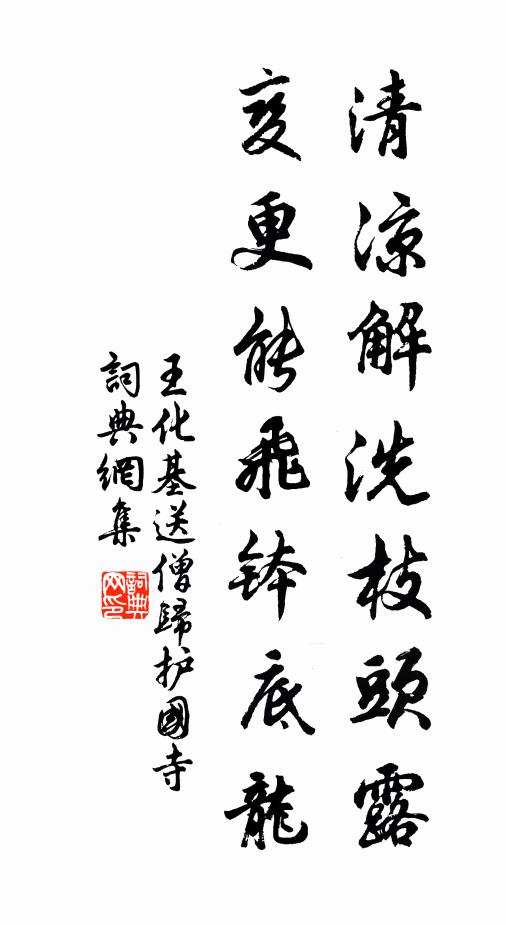 清涼解洗枝頭露
变更能飛鉢底龍
王化基送僧歸护國寺
詞典網集
詞典
网印